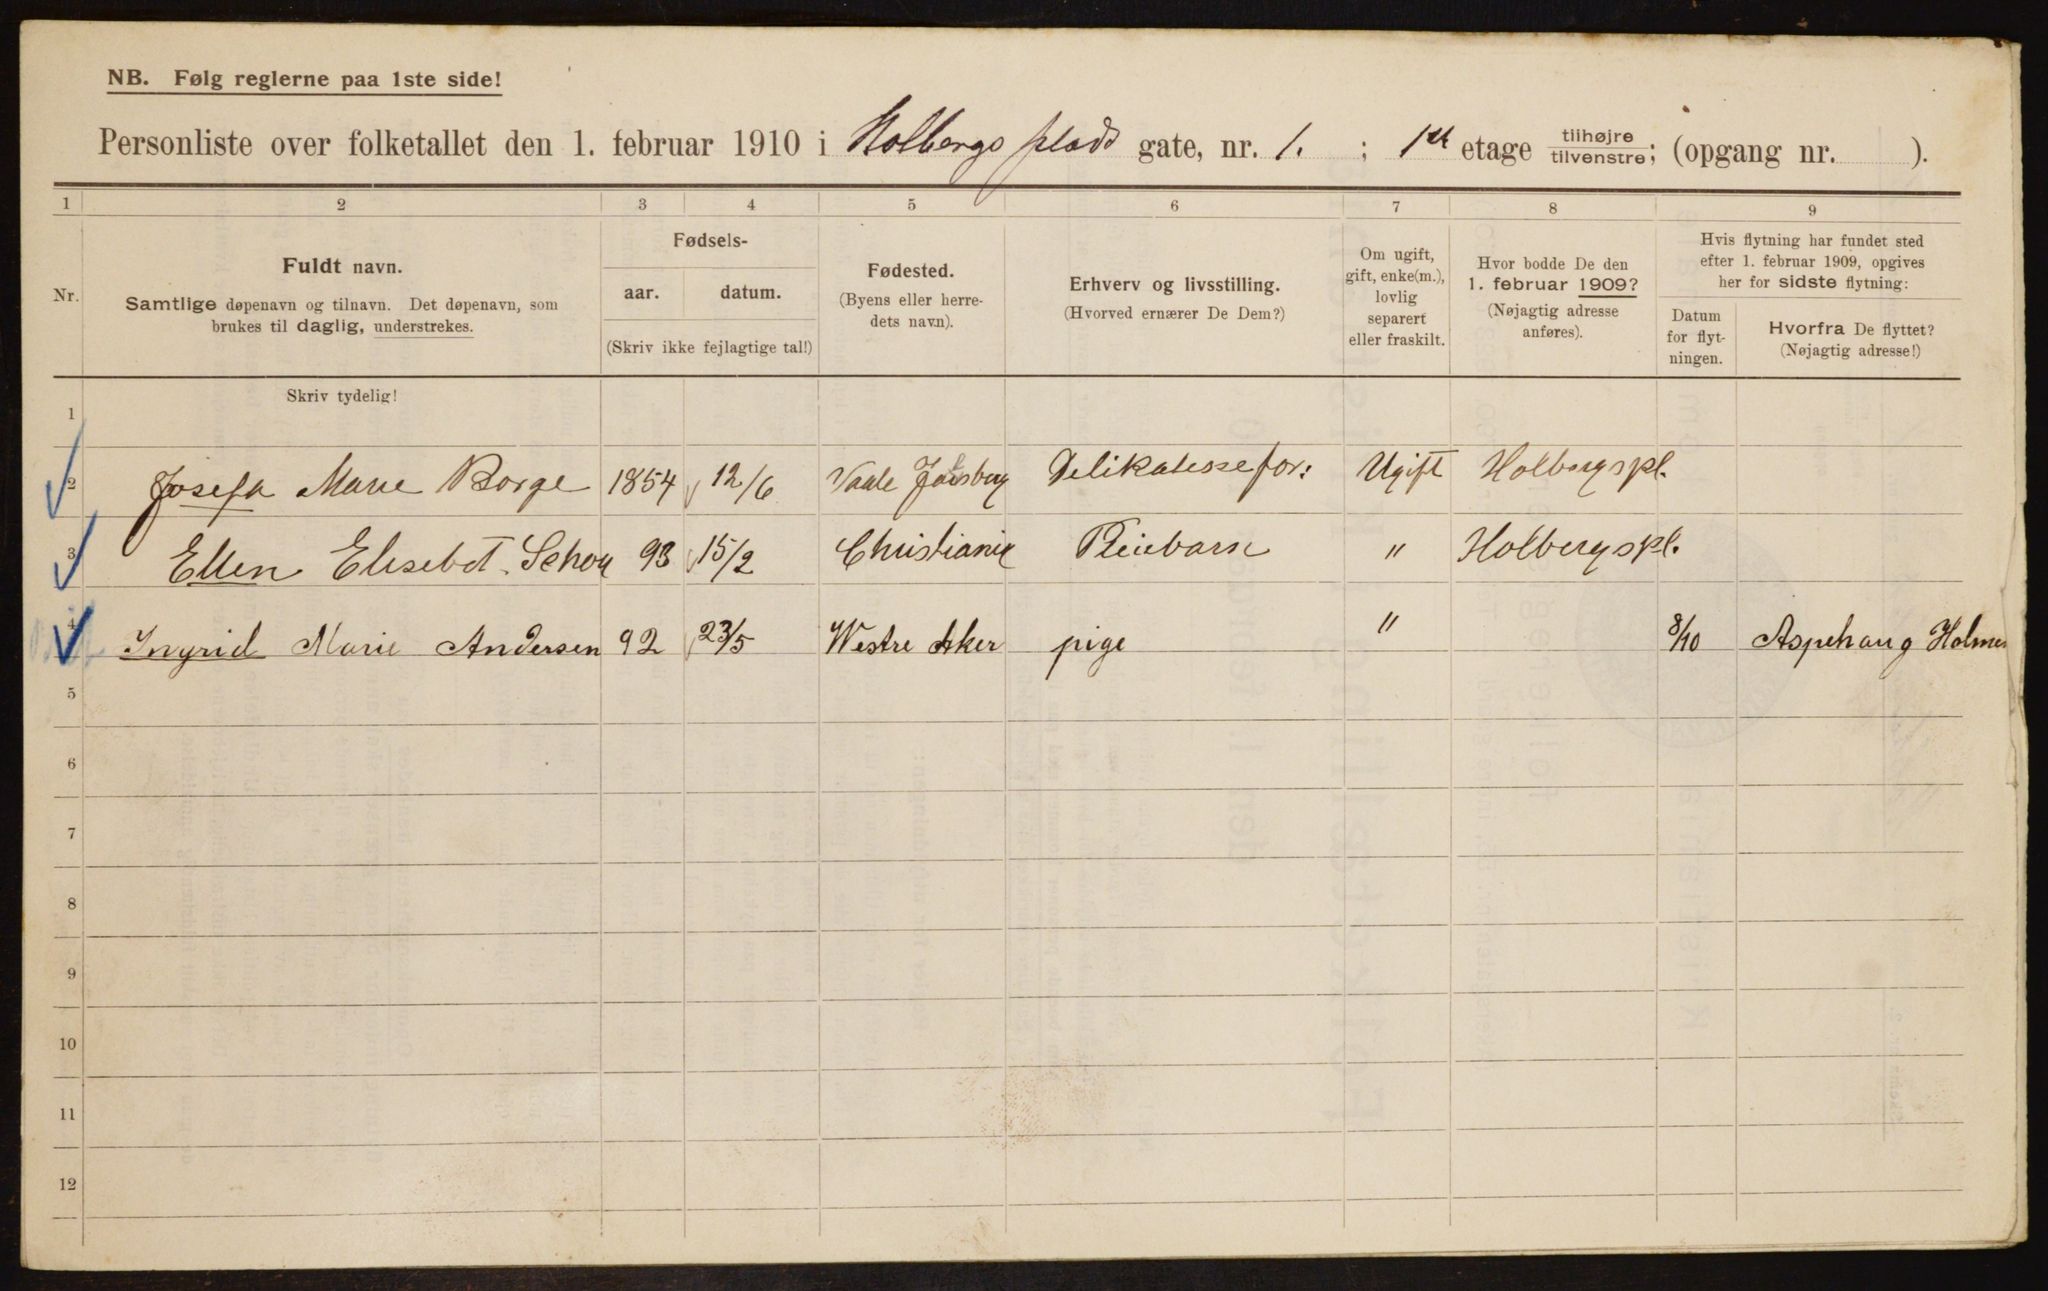 NB. Følg reglerne paa 1ste side!
Personliste over folketallet den 1. februar 1910 i Holbergs plads gate, nr. 1. ; 1ste etage tilhøjre/tilvenstre; (opgang nr. ).
1 2 3 4 5 6 7 8 9
Nr.
Fuldt navn.
Samtlige døpenavn og tilnavn. Det døpenavn, som
brukes til daglig, understrekes.
Fødsels-
aar. datum.
(Skriv ikke fejlagtige tal!)
Fødested.
(Byens eller herre-
dets navn).
Erhverv og livsstilling.
(Hvorved ernærer De Dem?)
Om ugift,
gift, enke(m.),
lovlig
separert
eller fraskilt.
Hvor bodde De den
1. februar 1909?
(Nøjagtig adresse
anføres).
Hvis flytning har fundet sted
efter 1. februar 1909, opgives
her for sidste flytning:
Datum
for flyt-
ningen.
Hvorfra De flyttet?
(Nøjagtig adresse!)
Skriv tydelig!
1
2 Josefa Marie Borge 1854 12/6 Vaale Jarlsberg Delikatessefor: Ugift Holbergspl.
3 Ellen Elisebet Schou 93 15/2 Christiania Pleiebarn " Holbergspl.
4 Ingrid Marie Andersen 92 23/5 Westre Aker pige " 8/10 Aspehaug Holmen
5
6
7
8
9
10
11
12